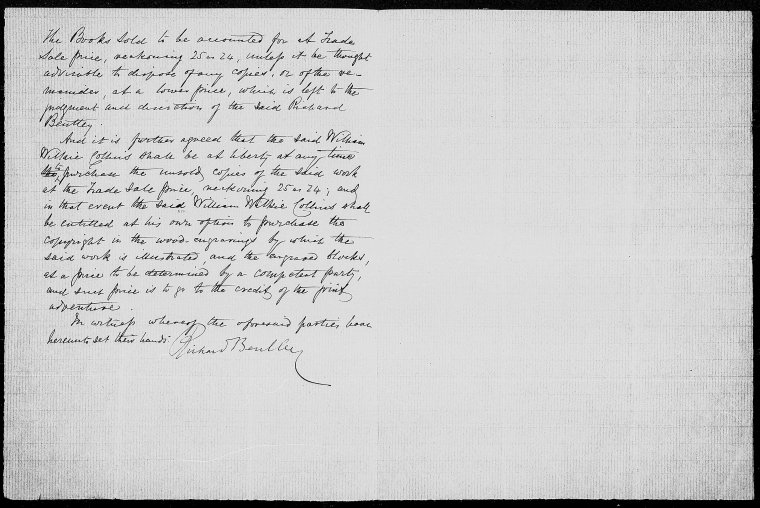 The Books sold to be accounted for at Trade
Sale price, reckoning 25 as 24, unless it be thought
advisable to dispose of any copies, or of the re-
mainder, at a lower price, which is left to the
judgment and discretion of the said Richard
Bentley.
And it is further agreed that the said William
Wilkie Collins shall be at liberty at any time
to purchase the unsold copies of the said work
at the Trade Sale price, reckoning 25 as 24; and
in that event the said William Wilkie Collins shall
be entitled at his own option to purchase the
copyright in the wood-engravings by which the
said work is illustrated, and the engraved blocks,
at a price to be determined by a competent party,
and such price is to go to the credit of the joint
adventure.
In witness whereof the aforesaid parties have
hereunto set their hands
Richard Bentley